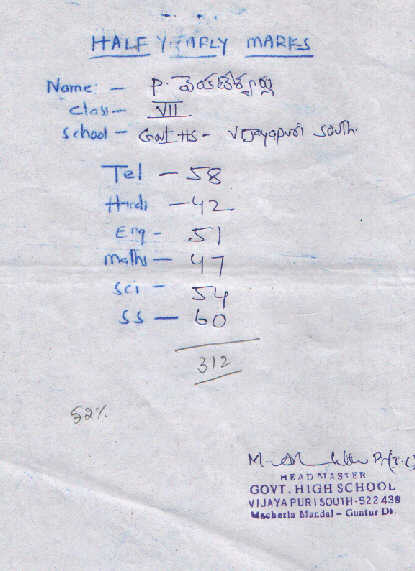 HALF YEARLY MARKS
Name: - P.
Class - VII
School - Govt HS - Vijayapuri South.
Tel - 58
Hindi - 42
Eng - 51
maths - 47
Sci - 54
SS - 60
312
52%
HEADMASTER
GOVT. HIGH SCHOOL
VIJAYAPURI SOUTH-522 438
Macherla Mandal - Guntur Dt.